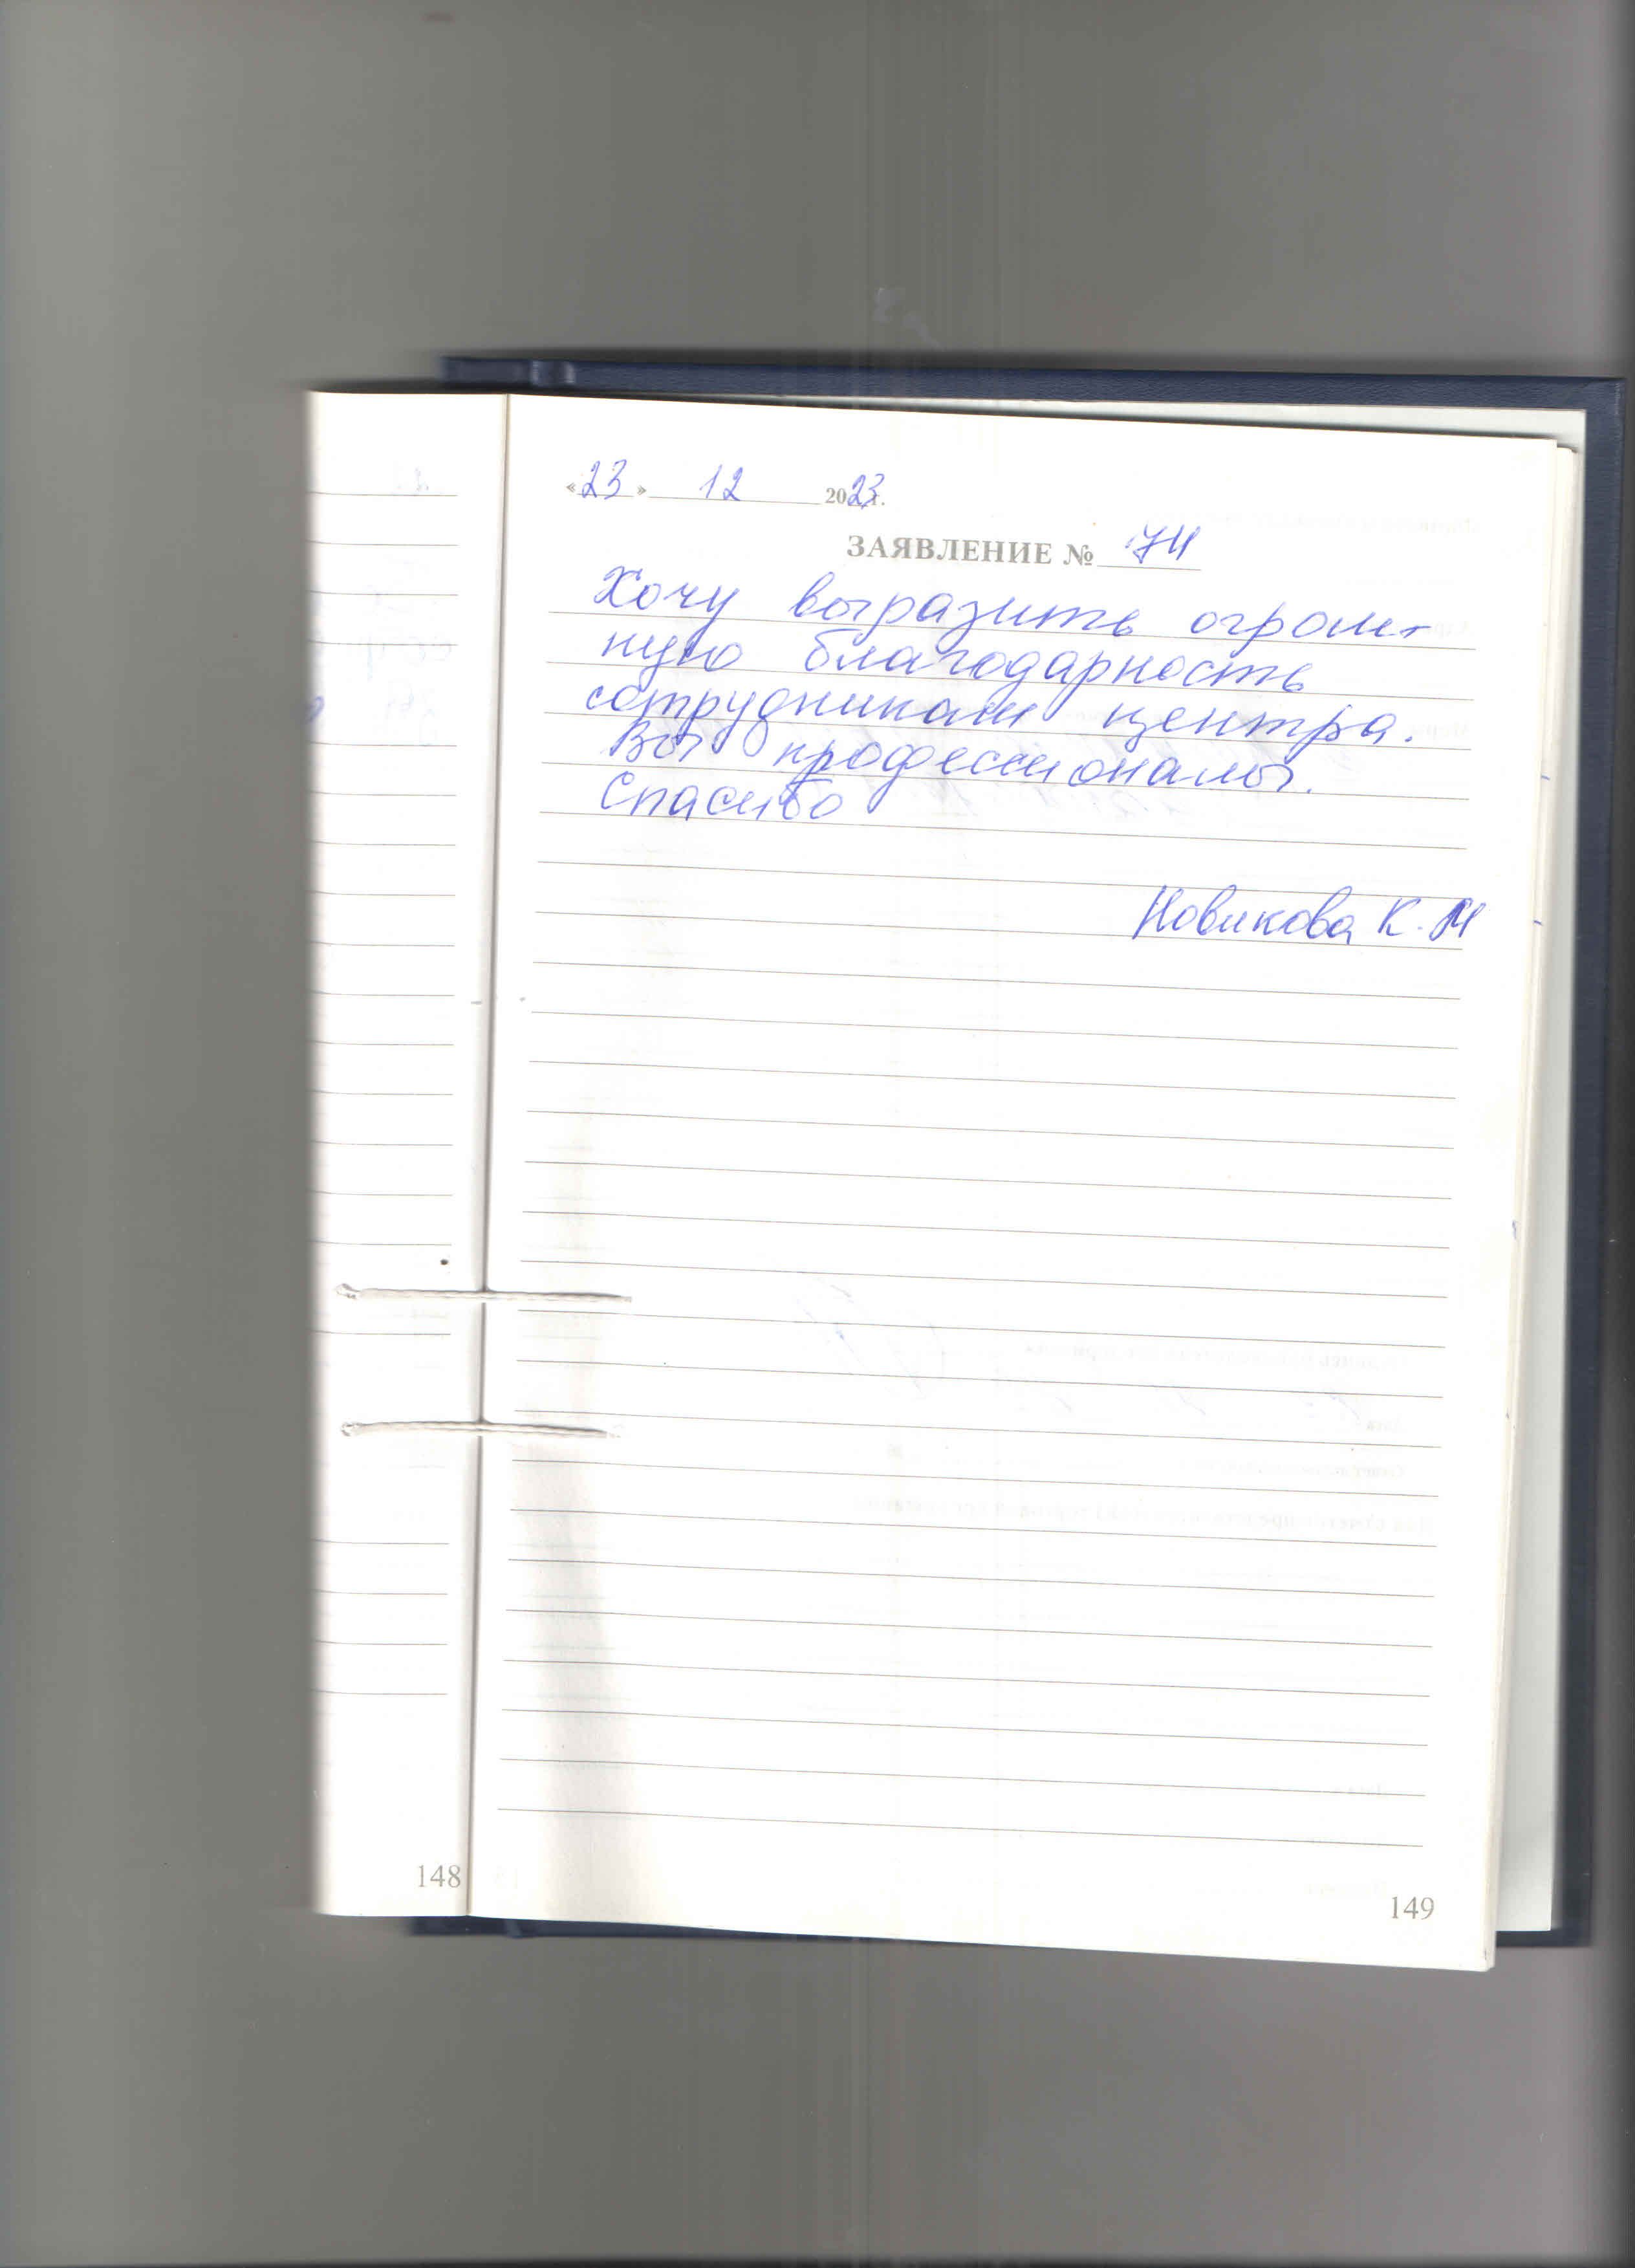 «23» 12 2023г.
ЗАЯВЛЕНИЕ № 74
Хочу выразить огром-
ную благодарность
сотрудникам центра.
Вы профессионалы.
Спасибо
Новикова К. М
148
149